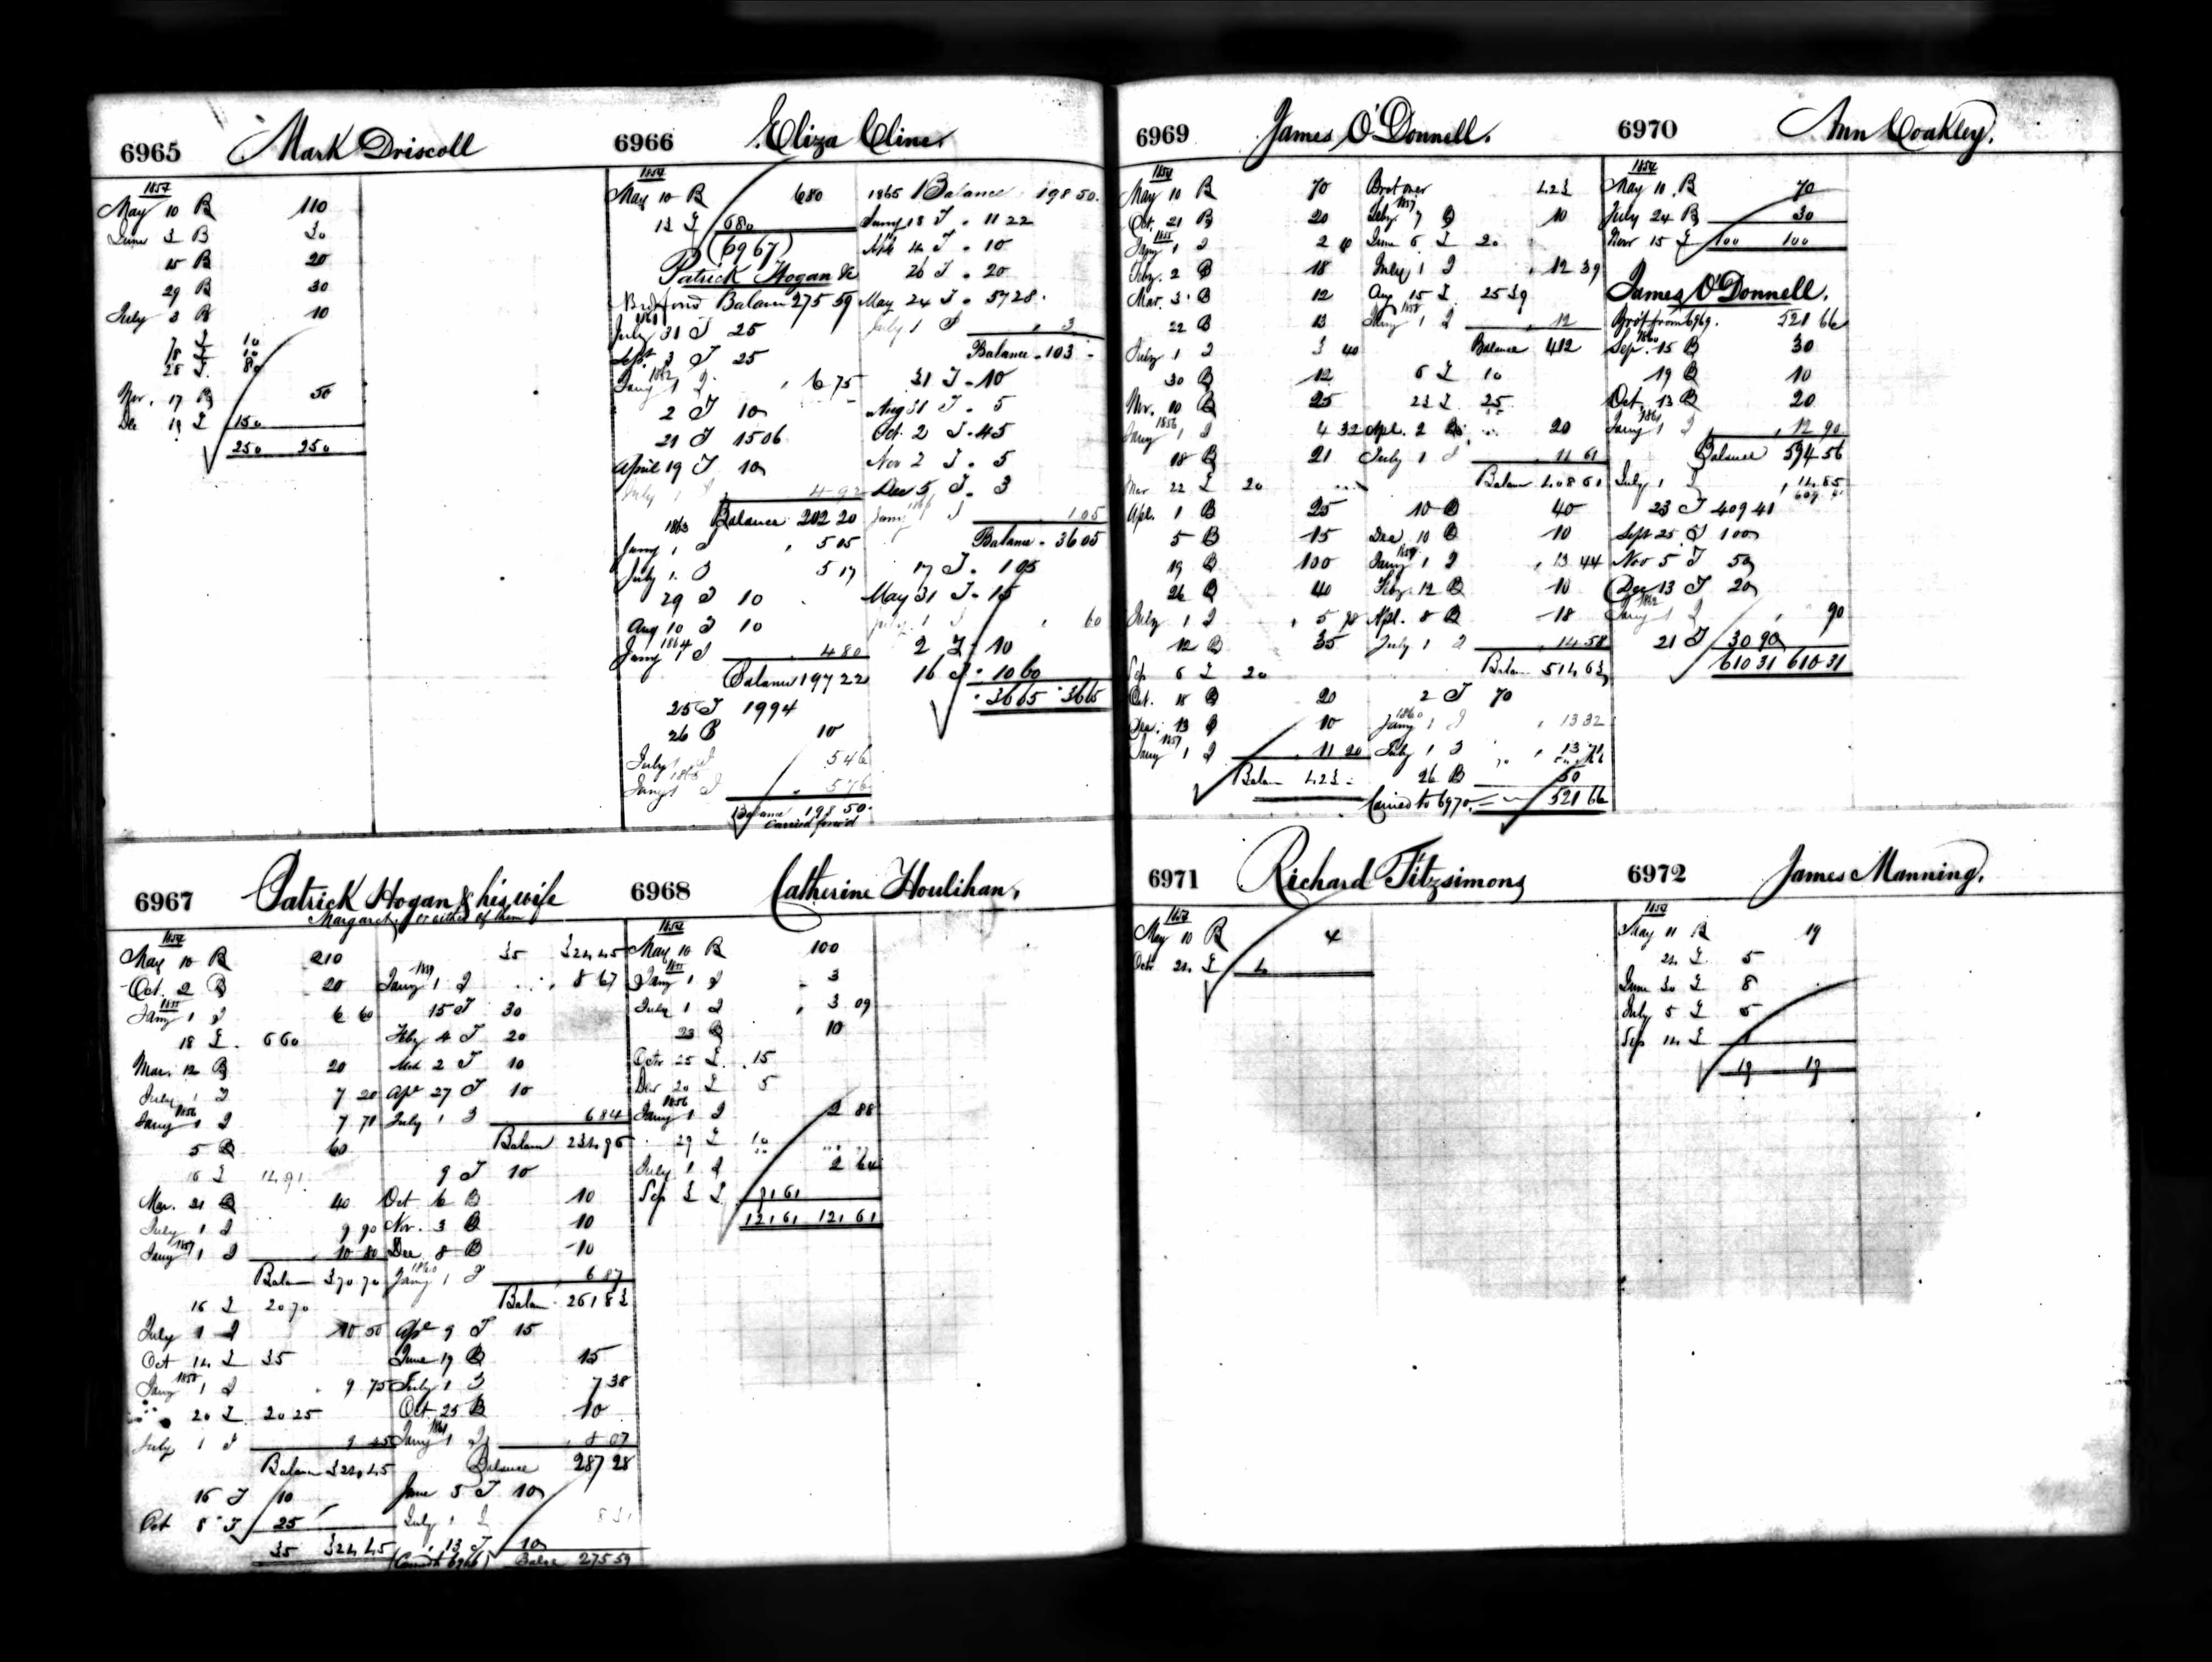 6965 Mark Driscoll
1854
May 10 B 110
June 3 B 30
15 B 20
29 B 30
July 3 B 10
7 I 10
18 I 10
28 I 80
Nov. 17 B 50
Dec 19 I 150
250 250
6966 Eliza Cline
1854
May 10 B 680
13 I 680
(6967)
Patrick Hogan &c
Balance 275 59
1861
July 31 T 25
Sept 3 T 25
1862
Jany 1 I 6 75
2 T 10
21 T 15 06
April 19 T 10
July 1 I 4 92
Balance 202 20
1863
Jany 1 I 5 05
July 1 I 5 17
29 T 10
Aug 10 T 10
1864
Jany 1 I 4 80
Balance 197 22
25 T 19 94
26 B 10
July 1 I 5 46
1865
Jany 1 I 5 76
Balance 198 50
Carried forw'd
1865 Balance 198 50
Jany 18 T 11 22
Apl 4 T 10
26 T 20
May 24 T 57 28
July 1 I 3
Balance 103
31 T 10
Aug 31 T 5
Oct 2 T 45
Nov 2 T 5
Dec 5 T 3
1866
Jany 1 I 1 05
Balance 36 05
17 T 1 05
May 31 T 15
July 1 I 60
2 T 10
16 T 10 60
36 65 36 65
6967 Patrick Hogan & his wife
Margaret, or either of them
1854
May 10 B 210
Oct. 2 B 20
1855
Jany 1 I 6 60
18 I 6 60
Mar. 12 B 20
July 1 I 7 20
1856
Jany 1 I 7 71
5 B 60
16 I 14 91
Mar. 21 B 40
July 1 I 9 90
1857
Jany 1 I 10 80
Balan 370 70
16 I 20 70
July 1 I 10 50
Oct 14 I 35
1858
Jany 1 I 9 75
20 I 20 25
July 1 I 9 45
Balan 324 45
16 T 10
Oct 8 T 25
35 324 45
35 324 45
1859
Jany 1 I 8 67
15 T 30
Feby 4 T 20
Mch 2 T 10
Apl 27 T 10
July 1 I 6 84
Balan 234 96
9 T 10
Oct 6 B 10
Nov. 3 B 10
Dec 8 B 10
1860
Jany 1 I 6 87
Balan 261 83
Apl 9 T 15
June 19 B 15
July 1 I 7 38
Oct 25 B 10
1861
Jany 1 I 8 07
Balance 287 28
June 5 T 10
July 1 I 8 31
13 T 10
(Carried to 6966) Balce 275 59
6968 Catherine Houlihan,
1854
May 10 B 100
1855
Jany 1 I 3
July 1 I 3 09
23 B 10
Octr 25 I 15
Decr 20 I 5
1856
Jany 1 I 2 88
29 I 10
July 1 I 2 64
Sep 3 I 91 61
121 61 121 61
6969 James O'Donnell.
1854
May 10 B 70
Oct. 21 B 20
1855
Jany 1 I 2 10
Feby. 2 B 18
Mar. 3 B 12
22 B 13
July 1 I 3 40
30 B 12
Nov. 10 B 25
1856
Jany 1 I 4 32
18 B 21
Mar 22 I 20
Apl. 1 B 25
5 B 15
19 B 100
26 B 40
July 1 I 5 98
12 B 35
Sep 6 I 20
Oct. 18 B 20
Dec. 13 B 10
1857
Jany 1 I 11 20
Balan 423
Brot over 423
1857
Feby. 7 B 10
June 6 I 20
July 1 I 12 39
Aug 15 I 25 39
1858
Jany 1 I 12
Balance 412
6 I 10
23 I 25
Apl. 2 B 20
July 1 I 11 61
Balan 408 61
10 B 40
Dec 10 B 10
1859
Jany 1 I 13 44
Feby. 12 B 10
Apl. 8 B 18
July 1 I 14 58
Balan 514 63
2 T 70
1860
Jany 1 I 13 32
July 1 I 13 71
26 B 50
Carried to 6970 521 66
6970 Ann Coakley.
1854
May 10. B 70
July 24 B 30
Novr 15 I 100 100
James O'Donnell.
Brot from 6969. 521 66
1860
Sep. 15 B 30
19 B 10
Oct. 13 B 20
1861
Jany 1 I 12 90
Balance 594 56
July 1 I 14 85
609 41
23 T 409 41
Sept 25 T 100
Nov 5 T 50
Dec 13 T 20
1862
Jany 1 I 90
21 T 30 90
610 31 610 31
6971 Richard Fitzsimons
1854
May 10 B 4
Octr 24 I 4
6972 James Manning.
1854
May 11 B 19
24 I 5
June 30 I 8
July 5 I 5
Sep 14 I 1
19 19